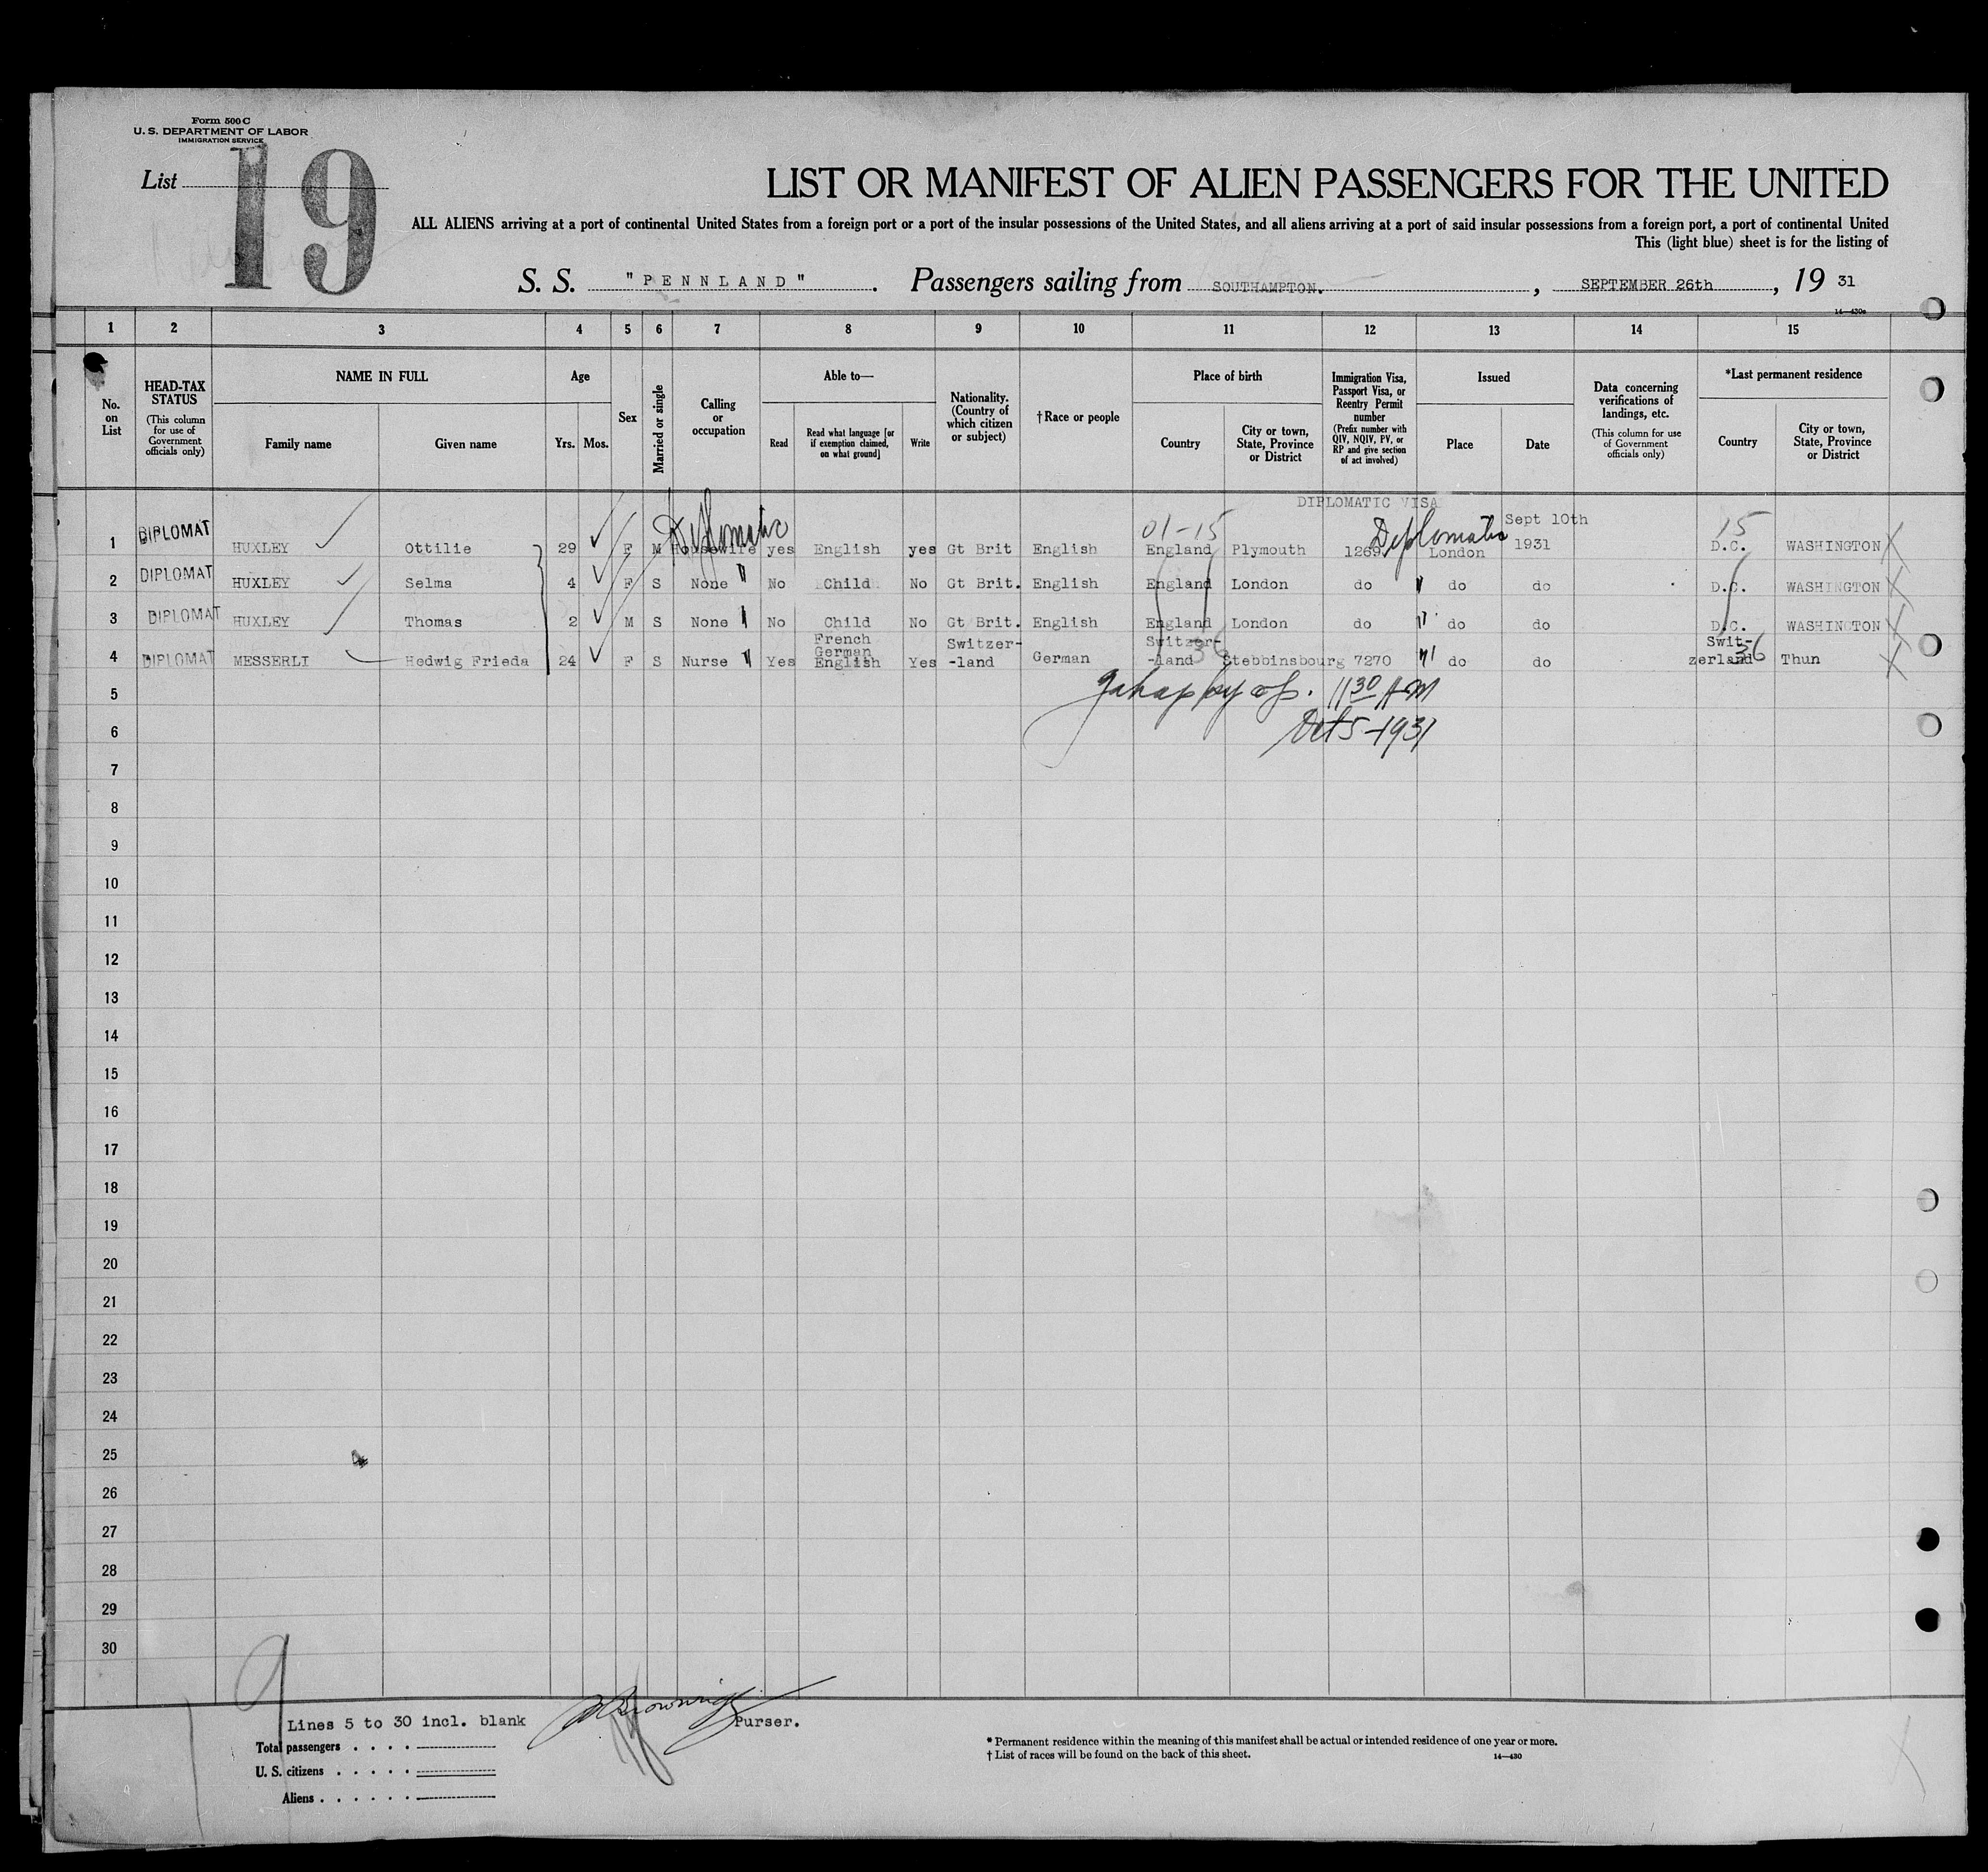 Form 500 C
U. S. DEPARTMENT OF LABOR
IMMIGRATION SERVICE
List
19
LIST OR MANIFEST OF ALIEN PASSENGERS FOR THE UNITED
ALL ALIENS arriving at a port of continental United States from a foreign port or a port of the insular possessions of the United States, and all aliens arriving at a port of said insular possessions from a foreign port, a port of continental United
This (light blue) sheet is for the listing of
S. S. "PENNLAND". Passengers sailing from SOUTHAMPTON. , SEPTEMBER 26th , 19 31
14—430a
1 2 3 4 5 6 7 8 9 10 11 12 13 14 15
No. on List
HEAD-TAX STATUS
(This column for use of Government officials only)
NAME IN FULL
Family name
Given name
Age
Yrs. Mos.
Sex
Married or single
Calling or occupation
Able to—
Read
Read what language [or if exemption claimed, on what ground]
Write
Nationality. (Country of which citizen or subject)
† Race or people
Place of birth
Country
City or town, State, Province or District
Immigration Visa, Passport Visa, or Reentry Permit number
(Prefix number with QIV, NQIV, PV, or RP and give section of act involved)
Issued
Place
Date
Data concerning verifications of landings, etc.
(This column for use of Government officials only)
*Last permanent residence
Country
City or town, State, Province or District
DIPLOMATIC VISA
Diplomatic 01-15 Diplomatic Sept 10th 15
1 DIPLOMAT HUXLEY Ottilie 29 F M Housewife yes English yes Gt Brit English England Plymouth 1269 London 1931 D.C. WASHINGTON
2 DIPLOMAT HUXLEY Selma 4 F S None " No Child No Gt Brit. English England London do " do do D.C. WASHINGTON
3 DIPLOMAT HUXLEY Thomas 2 M S None " No Child No Gt Brit. English England London do " do do D.C. WASHINGTON
4 DIPLOMAT MESSERLI Hedwig Frieda 24 F S Nurse " Yes French German English Yes Switzer-land German Switzer-land 36 Stebbinsbourg 7270 " do do Swit-zerland 36 Thun
5
11 30 AM
6
Oct 5-1931
7
8
9
10
11
12
13
14
15
16
17
18
19
20
21
22
23
24
25
26
27
28
29
30
Lines 5 to 30 incl. blank
Purser.
Total passengers . . . .
U. S. citizens . . . . .
Aliens . . . . . .
* Permanent residence within the meaning of this manifest shall be actual or intended residence of one year or more.
† List of races will be found on the back of this sheet.
14—430